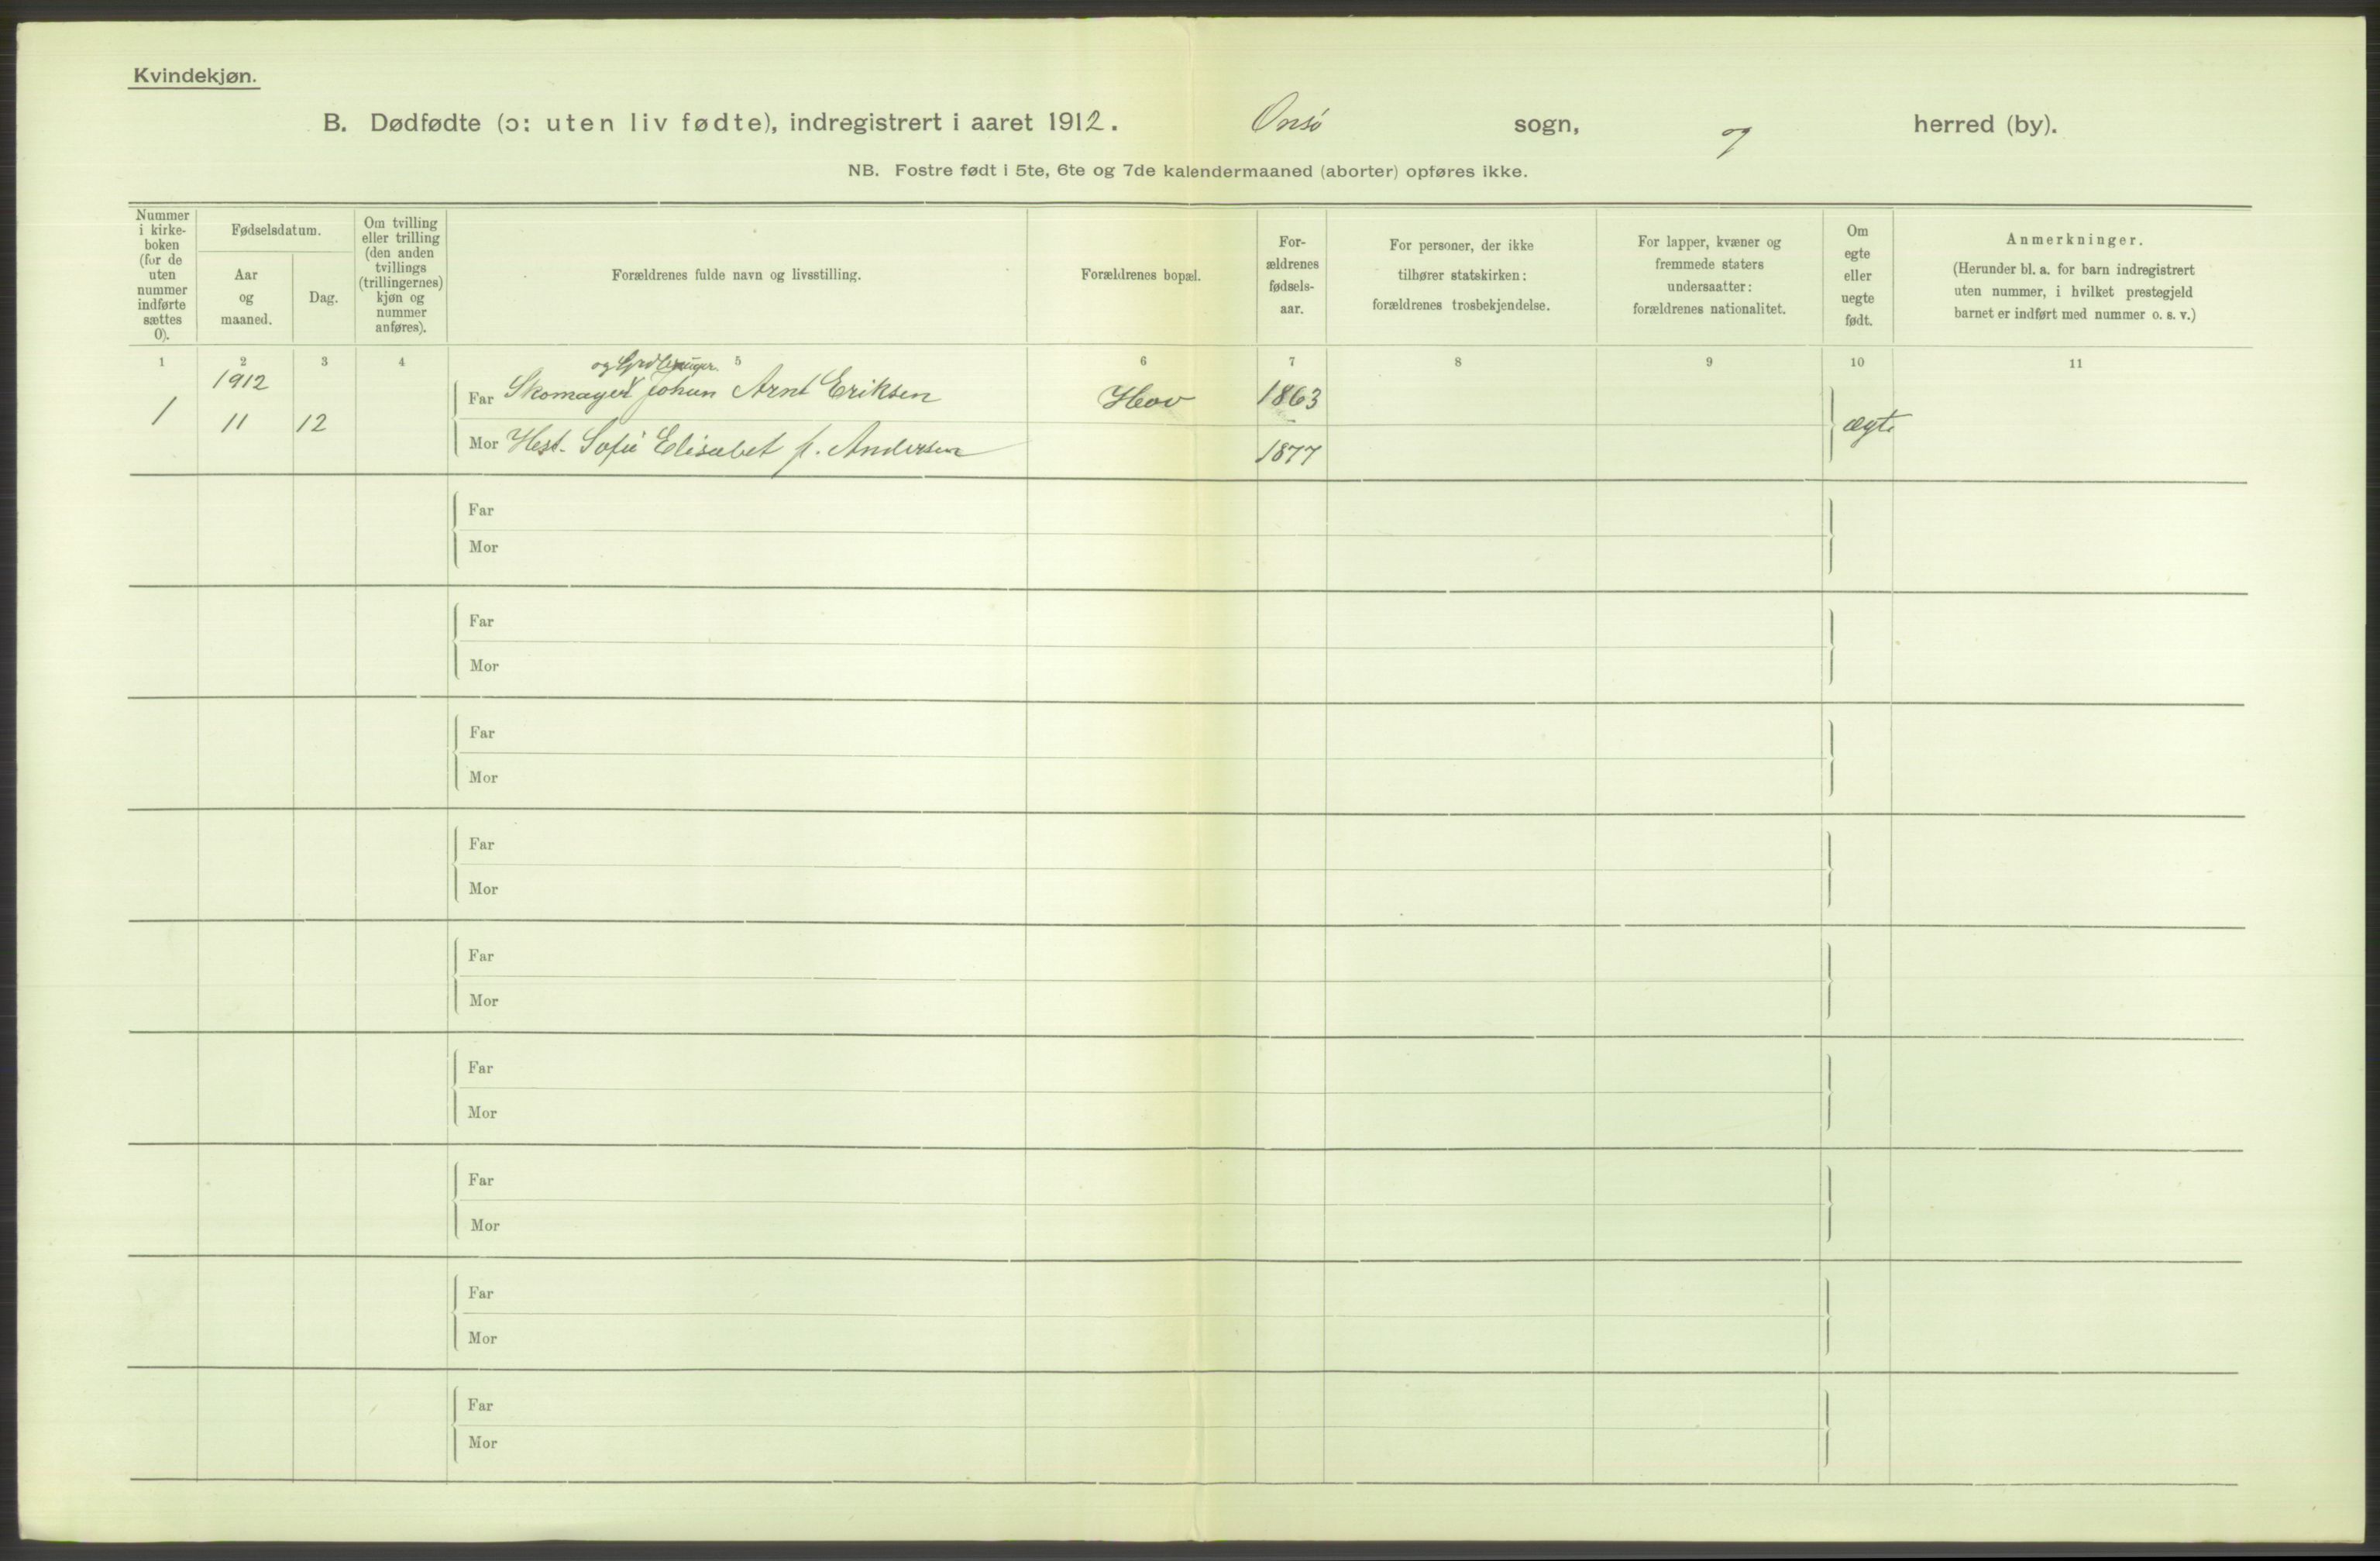 Kvindekjøn.
B. Dødfødte (ɔ: uten liv fødte), indregistrert i aaret 1912. Onsø sogn, og herred (by).
NB. Fostre født i 5te, 6te og 7de kalendermaaned (aborter) opføres ikke.
Nummer
i kirke-
boken
(for de
uten
nummer
indførte
sættes
0).
Fødselsdatum.
Aar
og
maaned.
Dag.
Om tvilling
eller trilling
(den anden
tvillings
(trillingernes)
kjøn og
nummer
anføres).
Forældrenes fulde navn og livsstilling.
Forældrenes bopæl.
For-
ældrenes
fødsels-
aar.
For personer, der ikke
tilhører statskirken:
forældrenes trosbekjendelse.
For lapper, kvæner og
fremmede staters
undersaatter:
forældrenes nationalitet.
Om
egte
eller
uegte
født.
Anmerkninger.
(Herunder bl. a. for barn indregistrert
uten nummer, i hvilket prestegjeld
barnet er indført med nummer o. s. v.)
1 2 3 4 5 6 7 8 9 10 11
og
1912
Far Skomager Johan Arnt Eriksen Hov 1863
1 11 12 ægte
Mor Hest. Sofie Elisabet f. Andersen 1877
Far
Mor
Far
Mor
Far
Mor
Far
Mor
Far
Mor
Far
Mor
Far
Mor
Far
Mor
Far
Mor